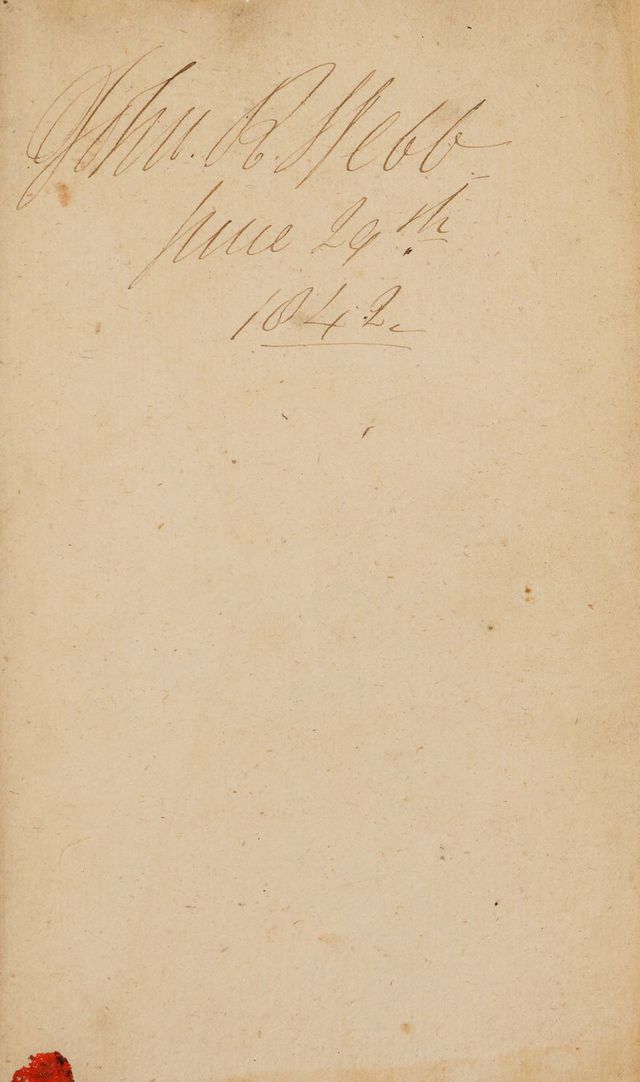 John. R. Webb
June 29th
1842.